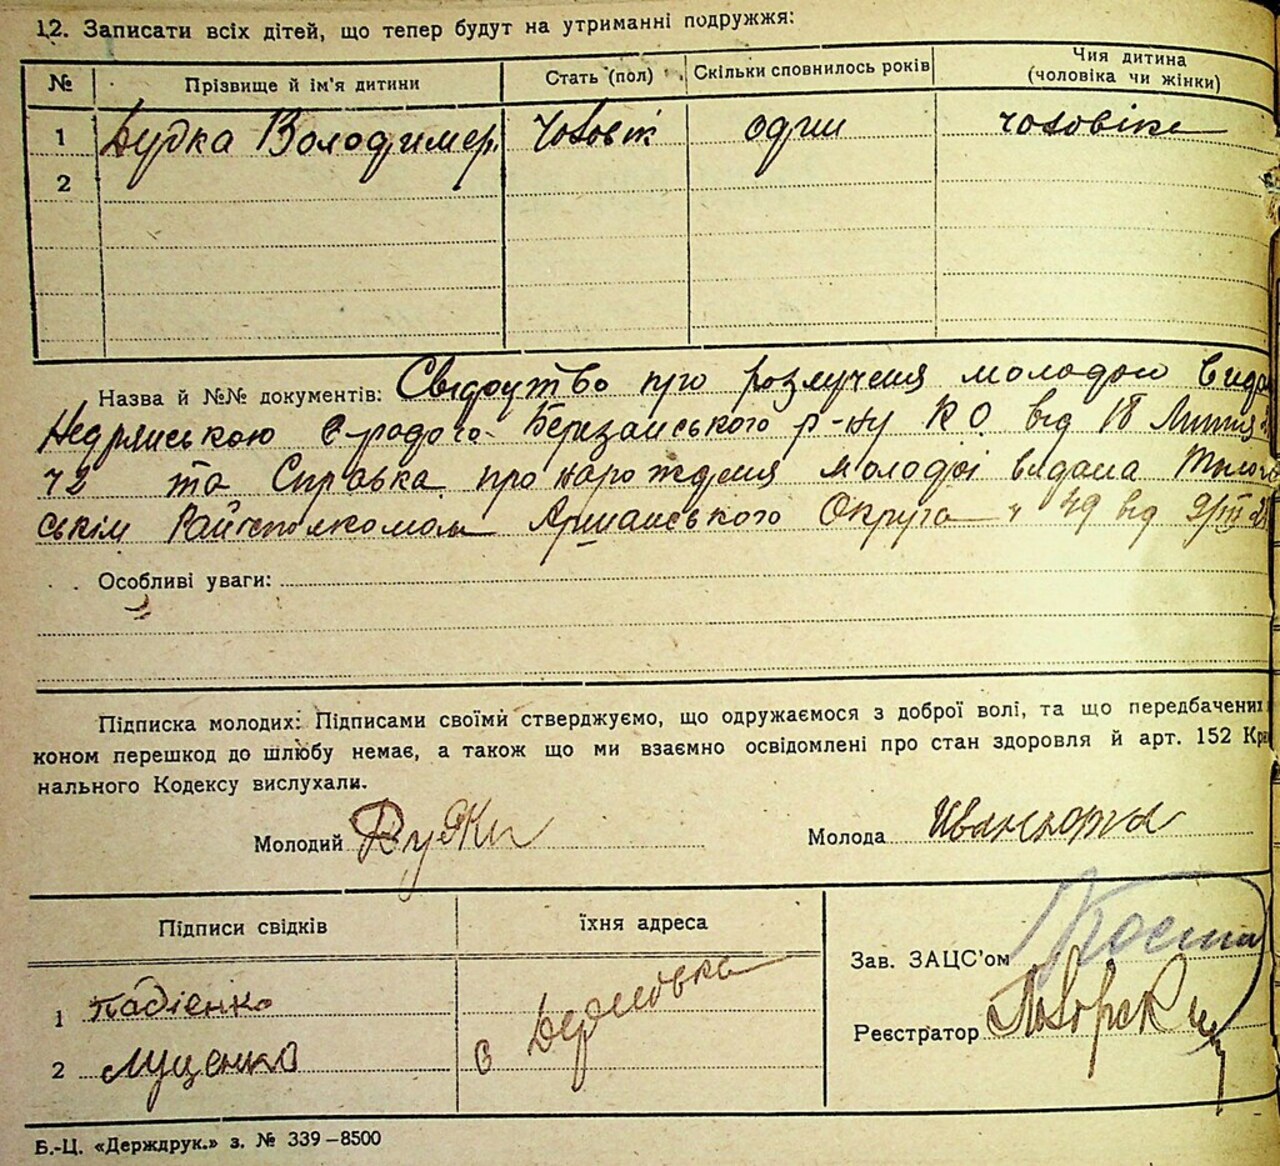 12. Записати всіх дітей, що тепер будут на утриманні подружжя:
№ Прізвище й ім'я дитини Стать (пол) Скільки сповнилось років Чия дитина (чоловіка чи жінки)
1 Дудка Володимер. чоловік один чоловіка
2
Назва й №№ документів: Свідоцтво про розлучення молодої видан
Недрянською с-радою Березанського р-ну К.О. від 18 Липня
72 та Справка про нарождення молодої видана
ським Райісполкомом Округа 49 від 9/III
Особливі уваги:
Підписка молодих: Підписами своїми стверджуємо, що одружаємося з доброї волі, та що передбачених
коном перешкод до шлюбу немає, а також що ми взаємно освідомлені про стан здоровля й арт. 152 Кри
нального Кодексу вислухали.
Молодий Дудки Молода Иванькова
Підписи свідків їхня адреса
Зав. ЗАЦС'ом
1 Падієнко
Реєстратор
2 Луценко с
Б.-Ц. «Держдрук.» з. № 339–8500